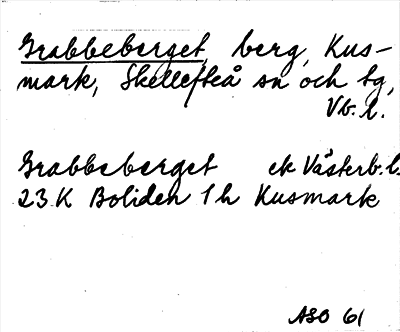 Grabbeberget, berg, Kus-
mark, Skellefteå sn och tg,
Vb. l.
Grabbeberget ek Västerb. l.
23 K Boliden 1 h Kusmark
ASO 61